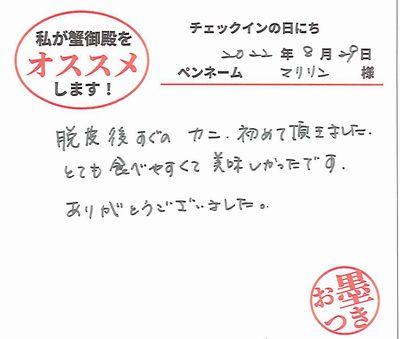 私が蟹御殿を
オススメ
します！
チェックインの日にち
2022年8月29日
ペンネーム マリリン 様
脱皮後すぐの カニ、初めて頂きました。
とても食べやすくて美味しかったです。
ありがとうございました。
お墨つき